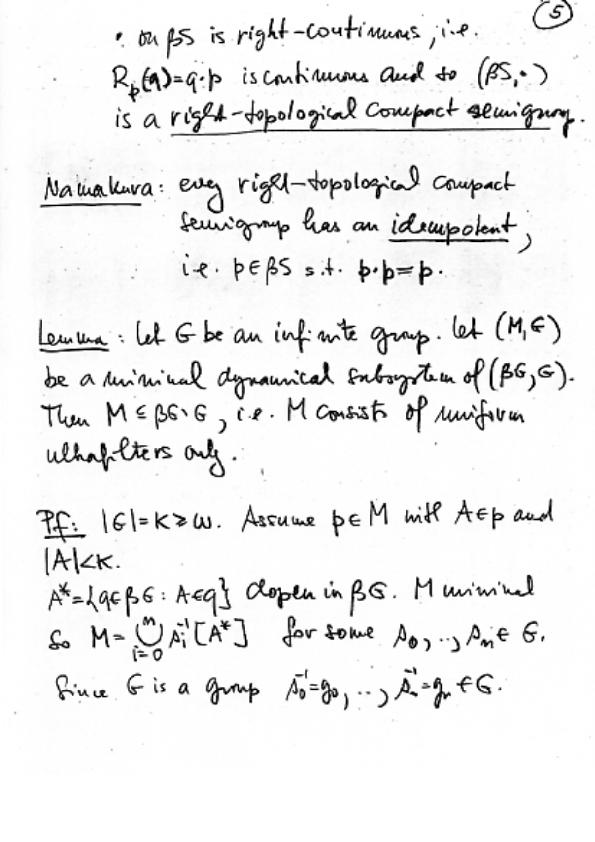 5
· on βS is right-continuous, i.e.
R_p(q)=q·p is continuous and so (βS,·)
is a right-topological compact semigroup.
Namakura: every right-topological compact
semigroup has an idempotent,
i.e. p∈βS s.t. p·p=p.
Lemma: Let G be an infinite group. Let (M,G)
be a minimal dynamical subsystem of (βG,G).
Then M⊆βG∖G, i.e. M consists of uniform
ultrafilters only.
Pf: |G|=κ≥ω. Assume p∈M with A∈p and
|A|<κ.
A*={q∈βG: A∈q} clopen in βG. M minimal
So M= ⋃_{i=0}^{n} s_i^{-1}[A*] for some s_0,..,s_n∈G.
Since G is a group s_0^{-1}=g_0,..,s_n^{-1}=g_n∈G.